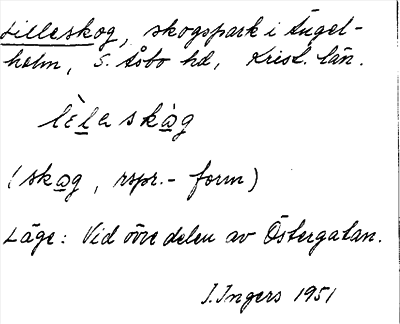 Lilleskog, skogspark i Ängel-
holm, S. Åsbo hd, Krist. län.
lèlaskàg
(skag, rspr.- form)
Läge: Vid övre delen av Östergatan.
I. Ingers 1951